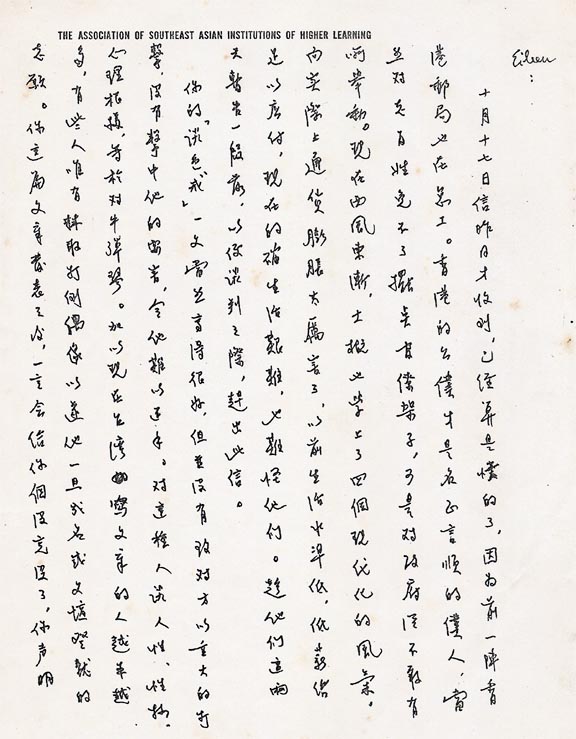 THE ASSOCIATION OF SOUTHEAST ASIAN INSTITUTIONS OF HIGHER LEARNING
Eileen:
十月十七日信昨日才收到，已經算是快的了，因为前一陣香
港郵局也在怠工。香港的公僕才是名正言順的僕人，當
然对老百姓免不了擺其官僕架子，可是对政府從不敢有
啊舉動。現在西風東漸，大概也学上了四個现代化的風氣。
向实際上通貨膨脹太厲害了，以前生活水準低，低薪倍
足以應付，現在的確生活艱難，也難怪他们。趁他们這両
天暫告一段落，以便談判之際，趕出此信。
你的「談色戒」一文當然寫得很好，但並没有致对方以重大的打
擊，没有擊中他的要害，令他難以還手。对這種人談人性、性格、
心理根據，等於对牛彈琴。加以現在台灣 寫文章的人越来越
多，有些人唯有採取打倒偶像以遂他一旦成名或文壇登龍的
志願。你這篇文章發表了後，一定会給你個没完没了，你声明